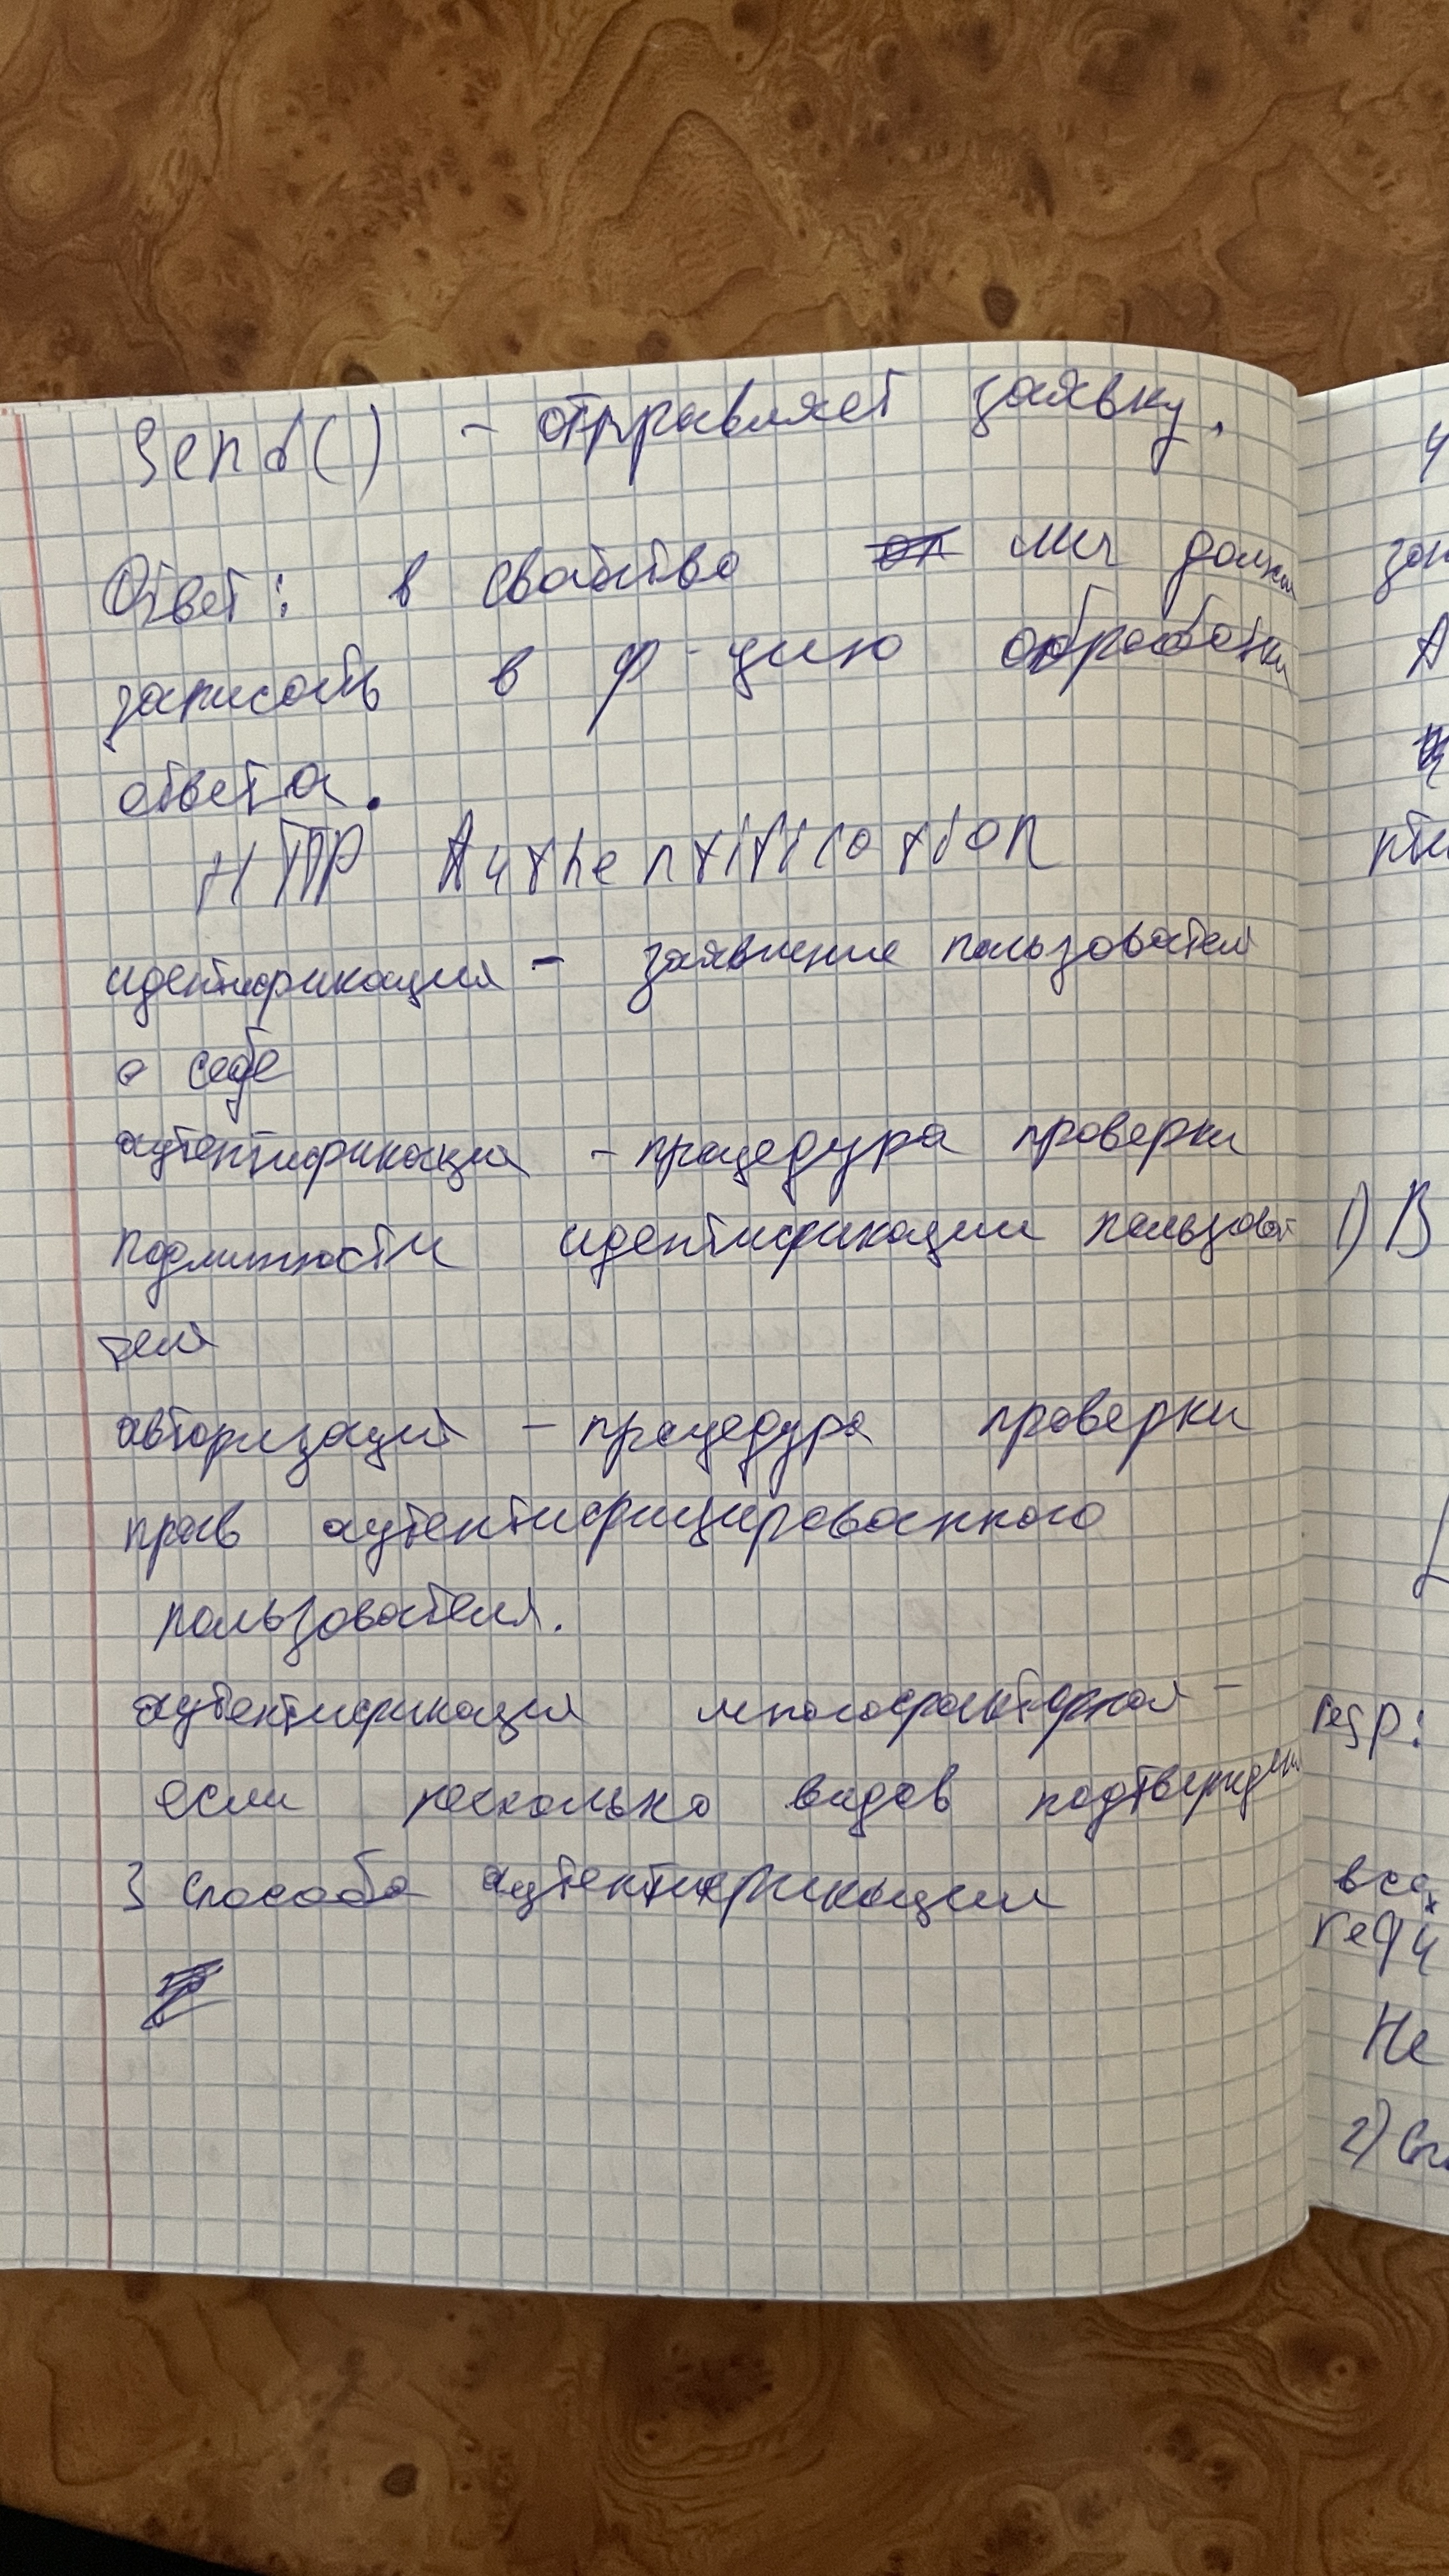 Send() - отправляет заявку.
Ответ: в свойство мы должны
записать в ф-цию обработки
ответа.
HTTP Authentification
идентификация - заявление пользователя
о себе
аутентификация - процедура проверки
подлинности идентификации пользова
теля
авторизация - процедура проверки
прав аутентифицированного
пользователя.
аутентификация многофакторная -
если несколько видов подтвержден
3 способа аутентификации
1) В
resp:
Не
2)